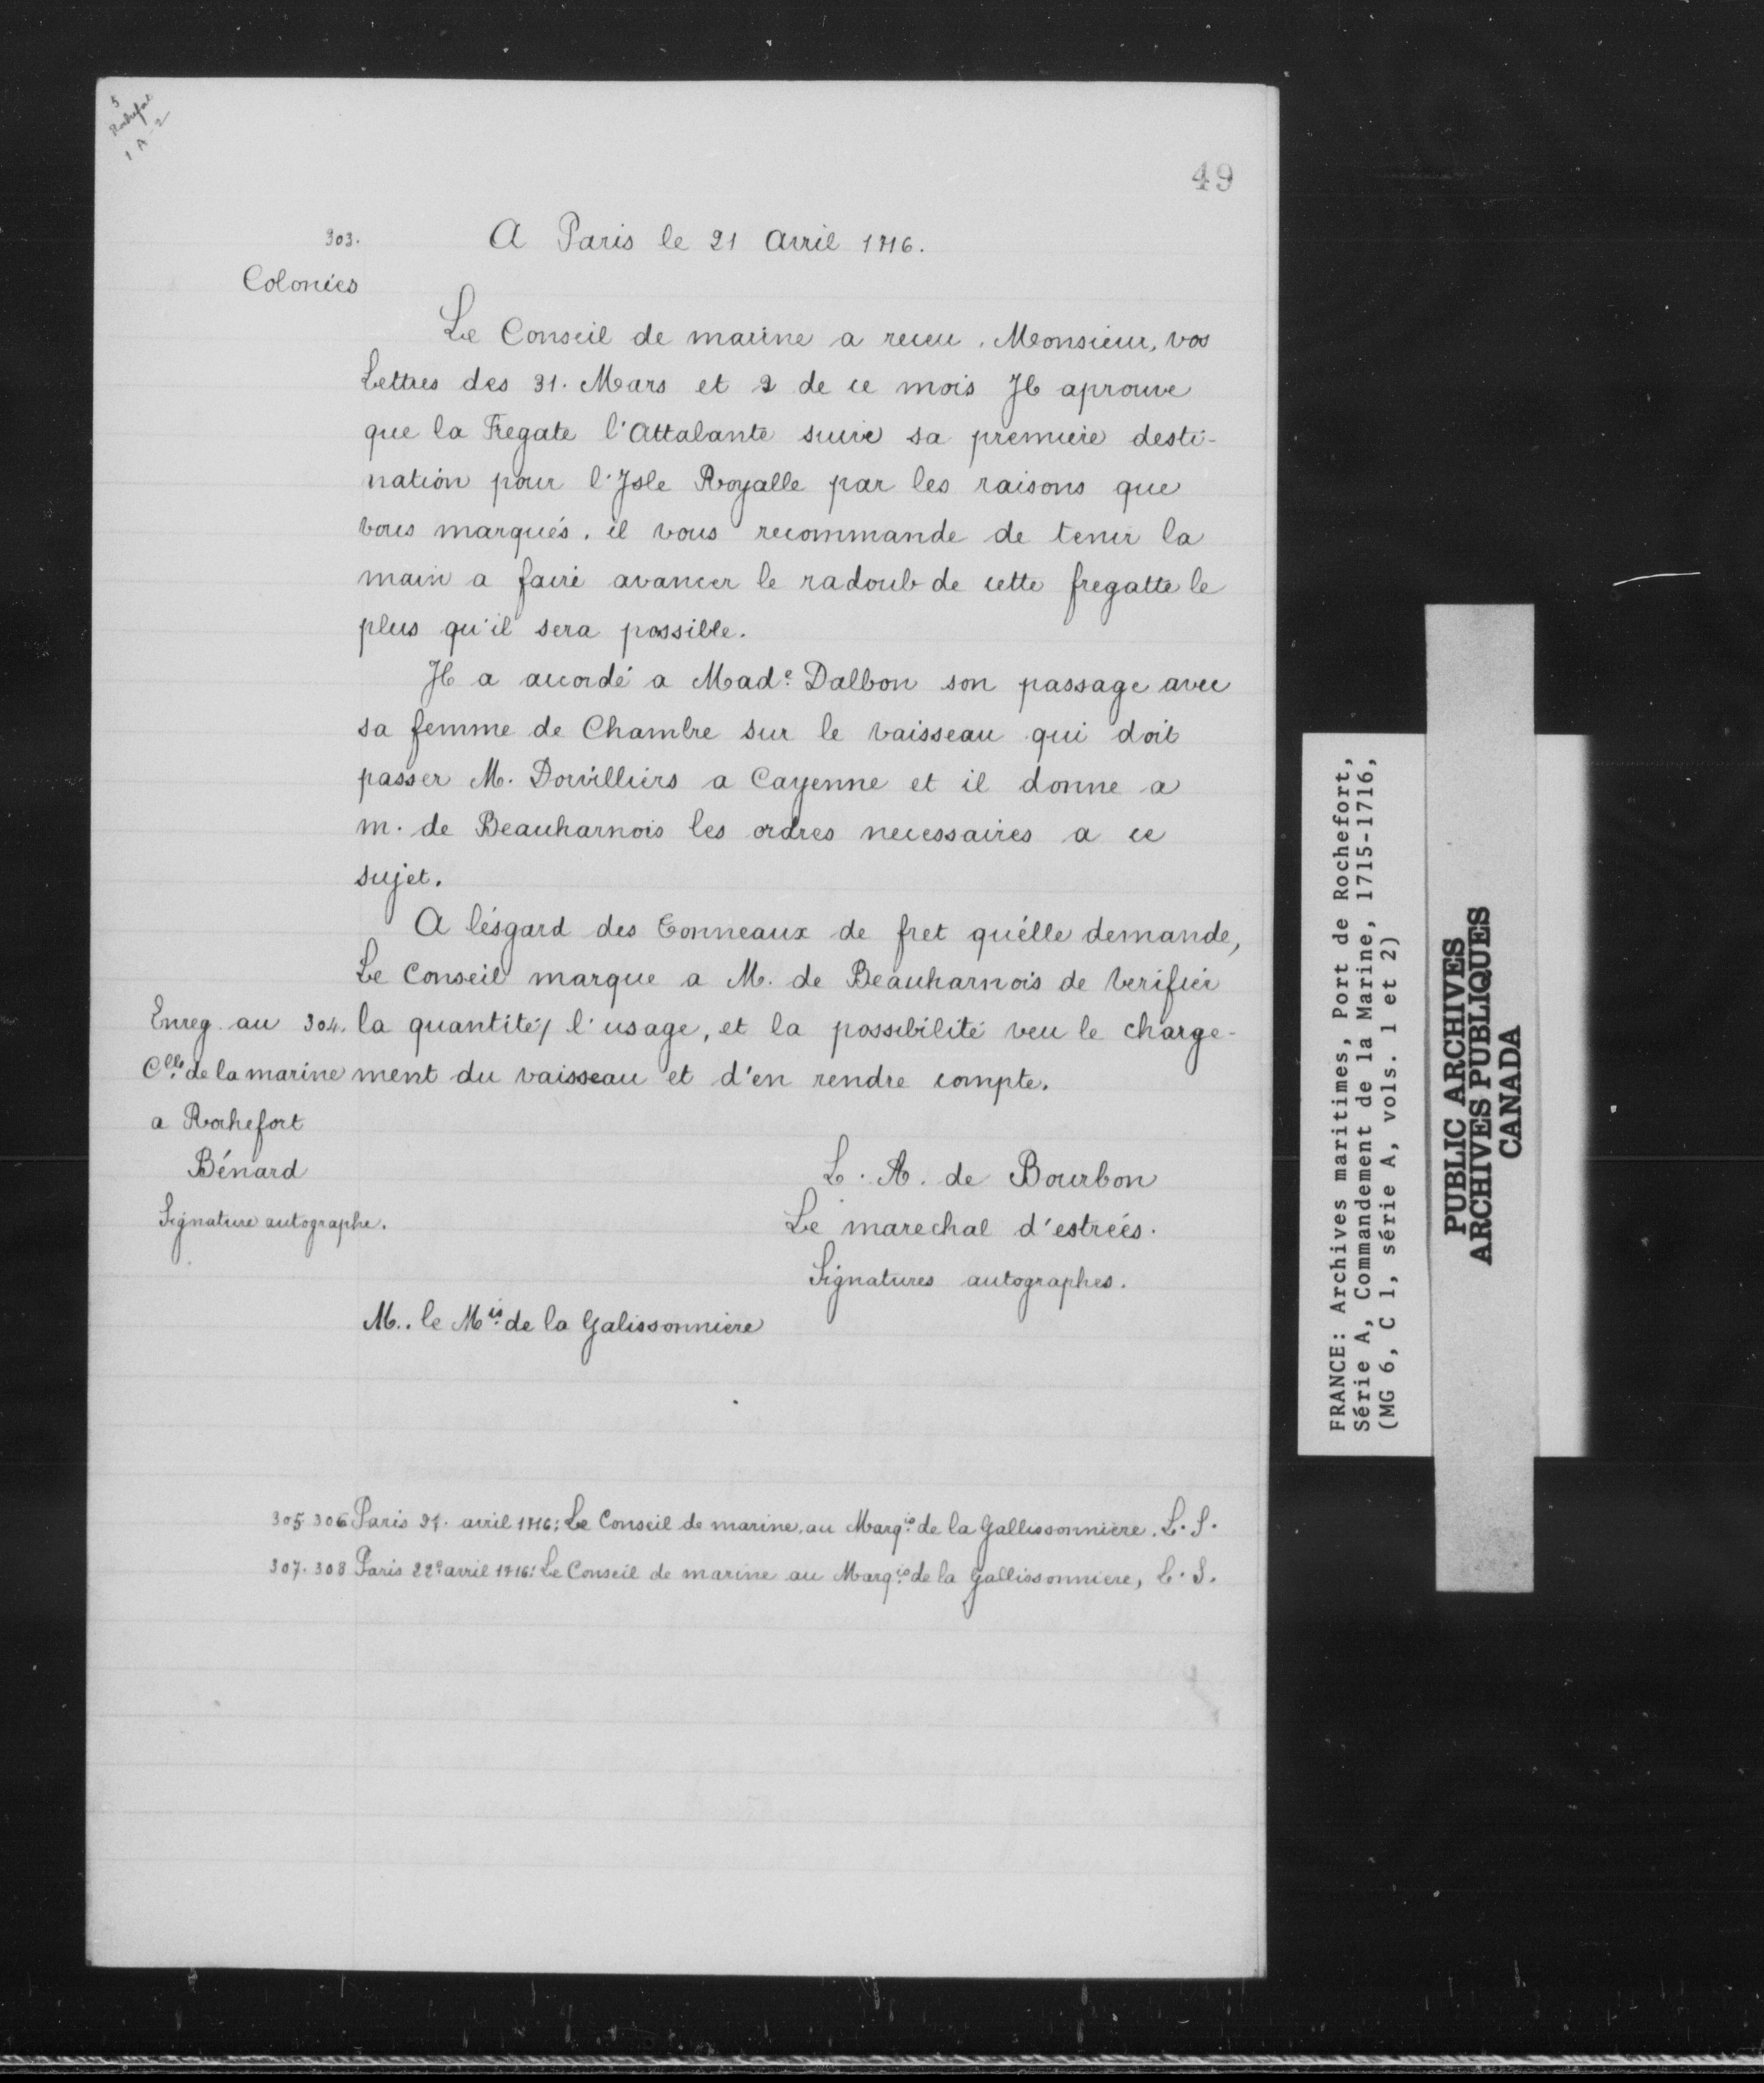 5
Rochefort
1 A-2
49
303.
A Paris le 21 Avril 1716.
Colonies
Le Conseil de marine a receu, Monsieur, vos
Lettres des 31. Mars et 2 de ce mois Il aprouve
que la Fregate l'Attalante suive sa premiere desti-
nation pour l'Isle Royalle par les raisons que
vous marqués. il vous recommande de tenir la
main a faire avancer le radoub de cette fregatte le
plus qu'il sera possible.
Il a accordé a Made. Dalbon son passage avec
sa femme de Chambre sur le vaisseau qui doit
passer M. Dorvilliers a Cayenne et il donne a
m. de Beauharnois les ordres necessaires a ce
sujet.
A lésgard des tonneaux de fret qu'élle demande,
Le Conseil marque a M. de Beauharnois de Verifier
la quantité, l'usage, et la possibilité veu le charge-
ment du vaisseau et d'en rendre compte.
Enreg. au 304.
Clle. de la marine
a Rochefort
Bénard
Signature autographe.
L. A. de Bourbon
Le marechal d'estrées.
Signatures autographes.
M. le Mis. de la Galissonniere
305 306 Paris 21. avril 1716: Le Conseil de marine, au Marqis. de la Gallissonniere. L. S.
307. 308 Paris 22e avril 1716: Le Conseil de marine au Marqis. de la Gallissonniere, L. S.
FRANCE: Archives maritimes, Port de Rochefort,
Série A, Commandement de la Marine, 1715-1716,
(MG 6, C 1, série A, vols. 1 et 2)
PUBLIC ARCHIVES
ARCHIVES PUBLIQUES
CANADA